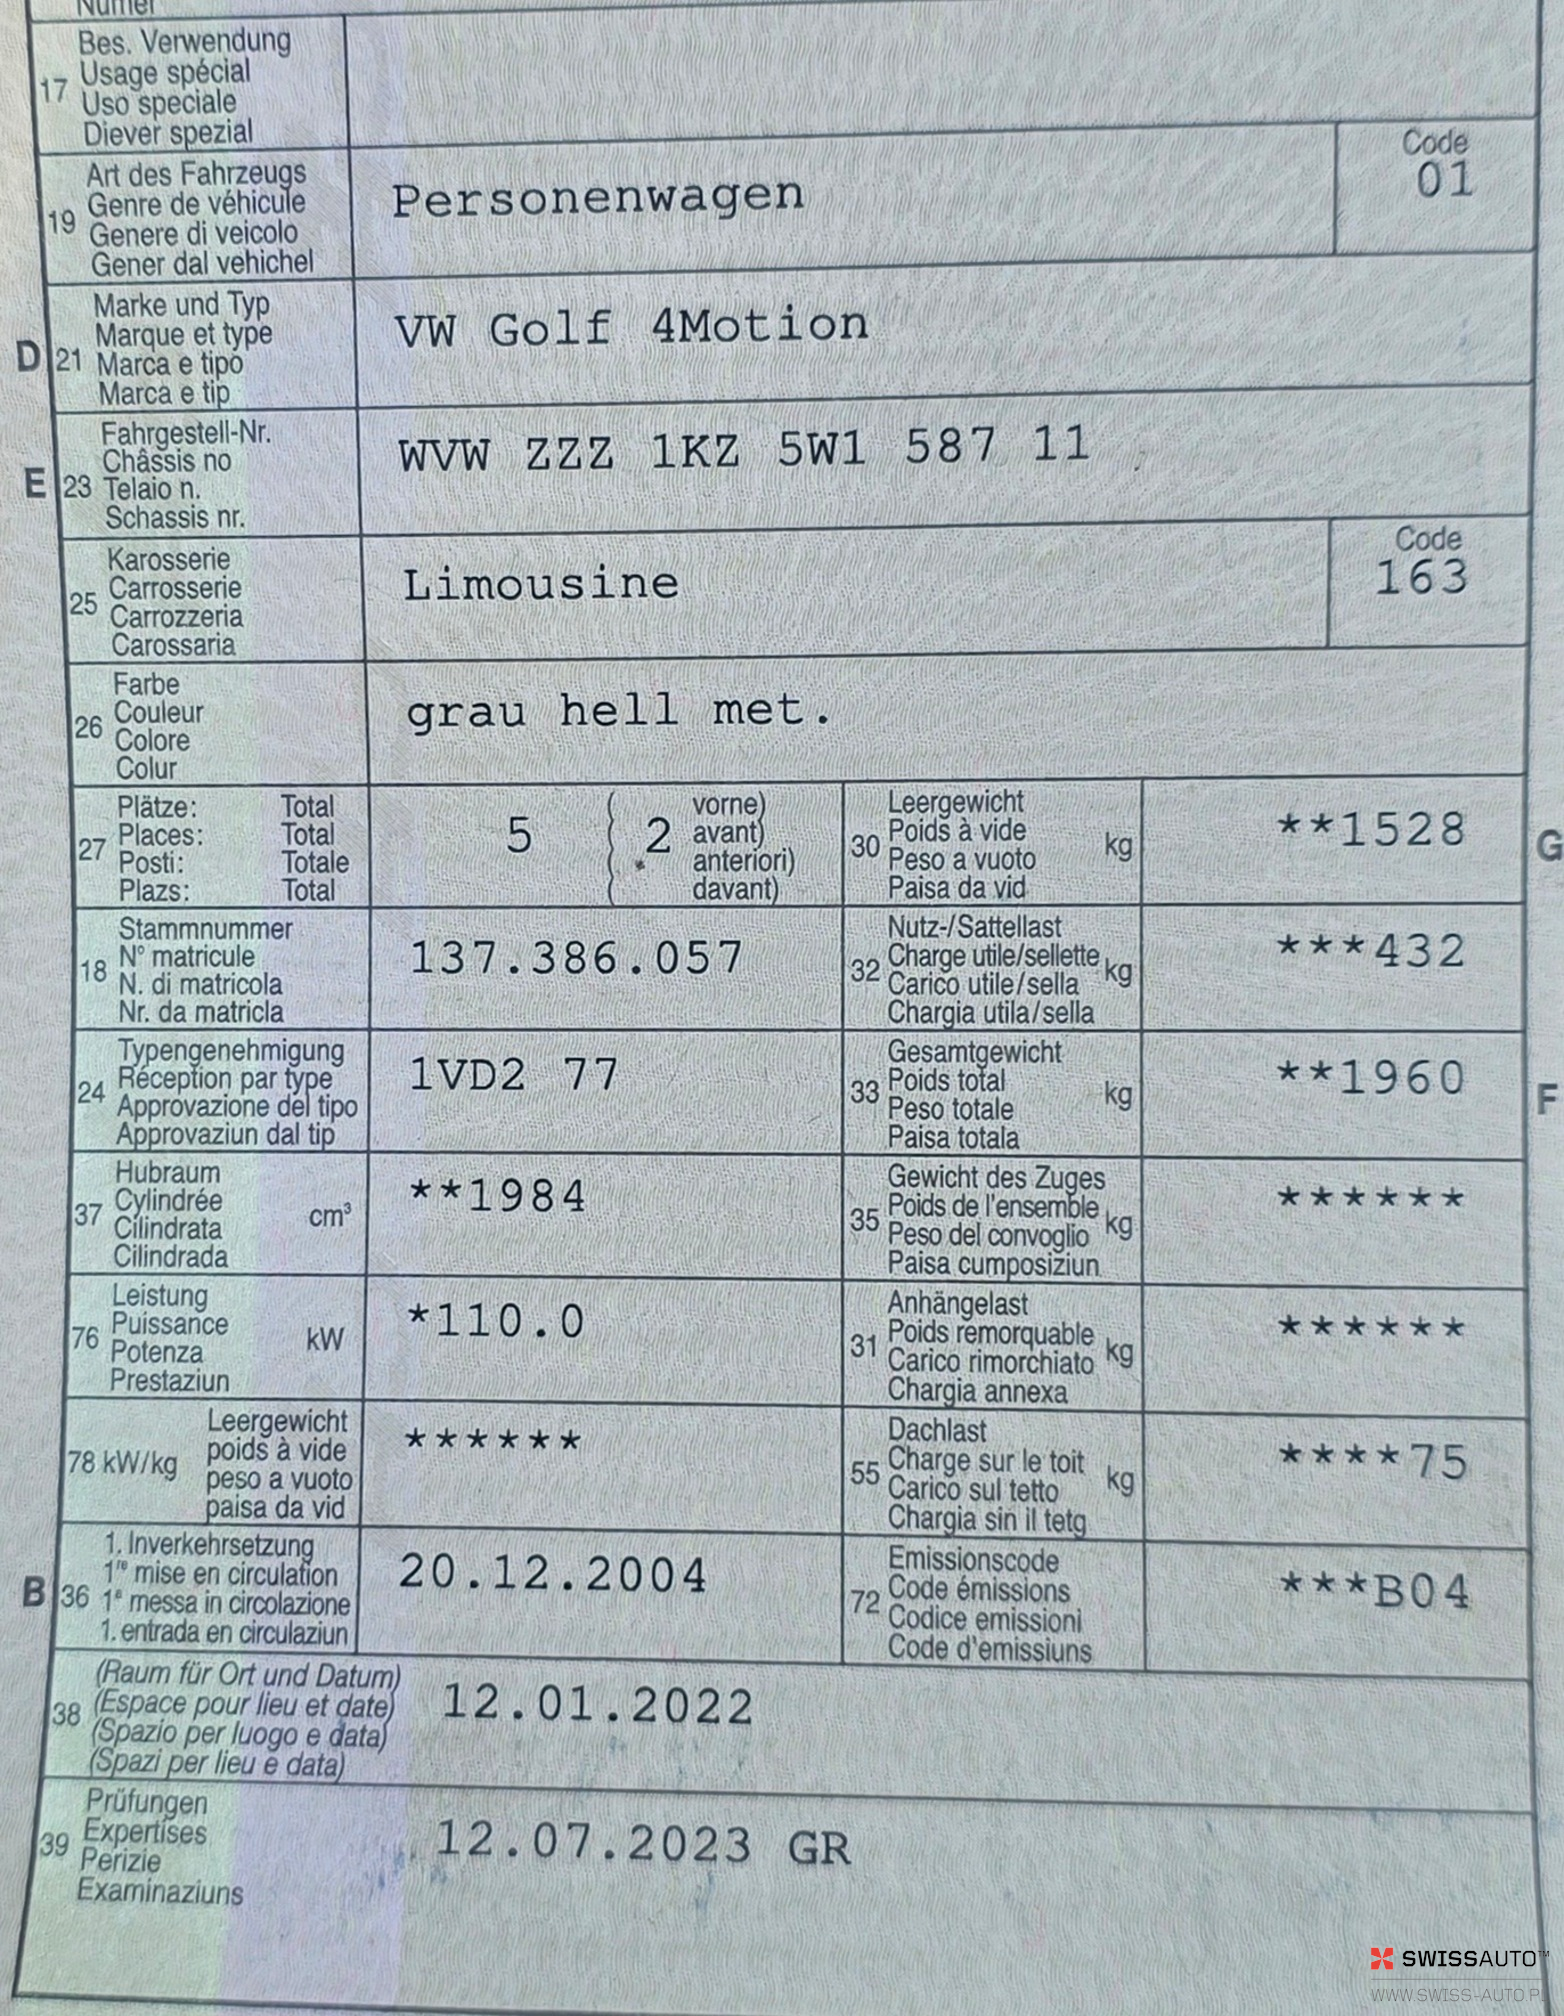 Numer
17
Bes. Verwendung
Usage spécial
Uso speciale
Diever spezial
19
Art des Fahrzeugs
Genre de véhicule
Genere di veicolo
Gener dal vehichel
Personenwagen
Code
01
D
21
Marke und Typ
Marque et type
Marca e tipo
Marca e tip
VW Golf 4Motion
E
23
Fahrgestell-Nr.
Châssis no
Telaio n.
Schassis nr.
WVW ZZZ 1KZ 5W1 587 11
25
Karosserie
Carrosserie
Carrozzeria
Carossaria
Limousine
Code
163
26
Farbe
Couleur
Colore
Colur
grau hell met.
27
Plätze: Total
Places: Total
Posti: Totale
Plazs: Total
5
( 2 vorne)
avant)
anteriori)
davant)
30
Leergewicht
Poids à vide
Peso a vuoto
Paisa da vid
kg
**1528
G
18
Stammnummer
N° matricule
N. di matricola
Nr. da matricla
137.386.057
32
Nutz-/Sattellast
Charge utile/sellette
Carico utile/sella
Chargia utila/sella
kg
***432
24
Typengenehmigung
Réception par type
Approvazione del tipo
Approvaziun dal tip
1VD2 77
33
Gesamtgewicht
Poids total
Peso totale
Paisa totala
kg
**1960
F
37
Hubraum
Cylindrée
Cilindrata
Cilindrada
cm³
**1984
35
Gewicht des Zuges
Poids de l'ensemble
Peso del convoglio
Paisa cumposiziun
kg
******
76
Leistung
Puissance
Potenza
Prestaziun
kW
*110.0
31
Anhängelast
Poids remorquable
Carico rimorchiato
Chargia annexa
kg
******
78 kW/kg
Leergewicht
poids à vide
peso a vuoto
paisa da vid
******
55
Dachlast
Charge sur le toit
Carico sul tetto
Chargia sin il tetg
kg
****75
B
36
1. Inverkehrsetzung
1re mise en circulation
1a messa in circolazione
1. entrada en circulaziun
20.12.2004
72
Emissionscode
Code émissions
Codice emissioni
Code d'emissiuns
***B04
38
(Raum für Ort und Datum)
(Espace pour lieu et date)
(Spazio per luogo e data)
(Spazi per lieu e data)
12.01.2022
39
Prüfungen
Expertises
Perizie
Examinaziuns
12.07.2023 GR
SWISSAUTO™
WWW.SWISS-AUTO.PL